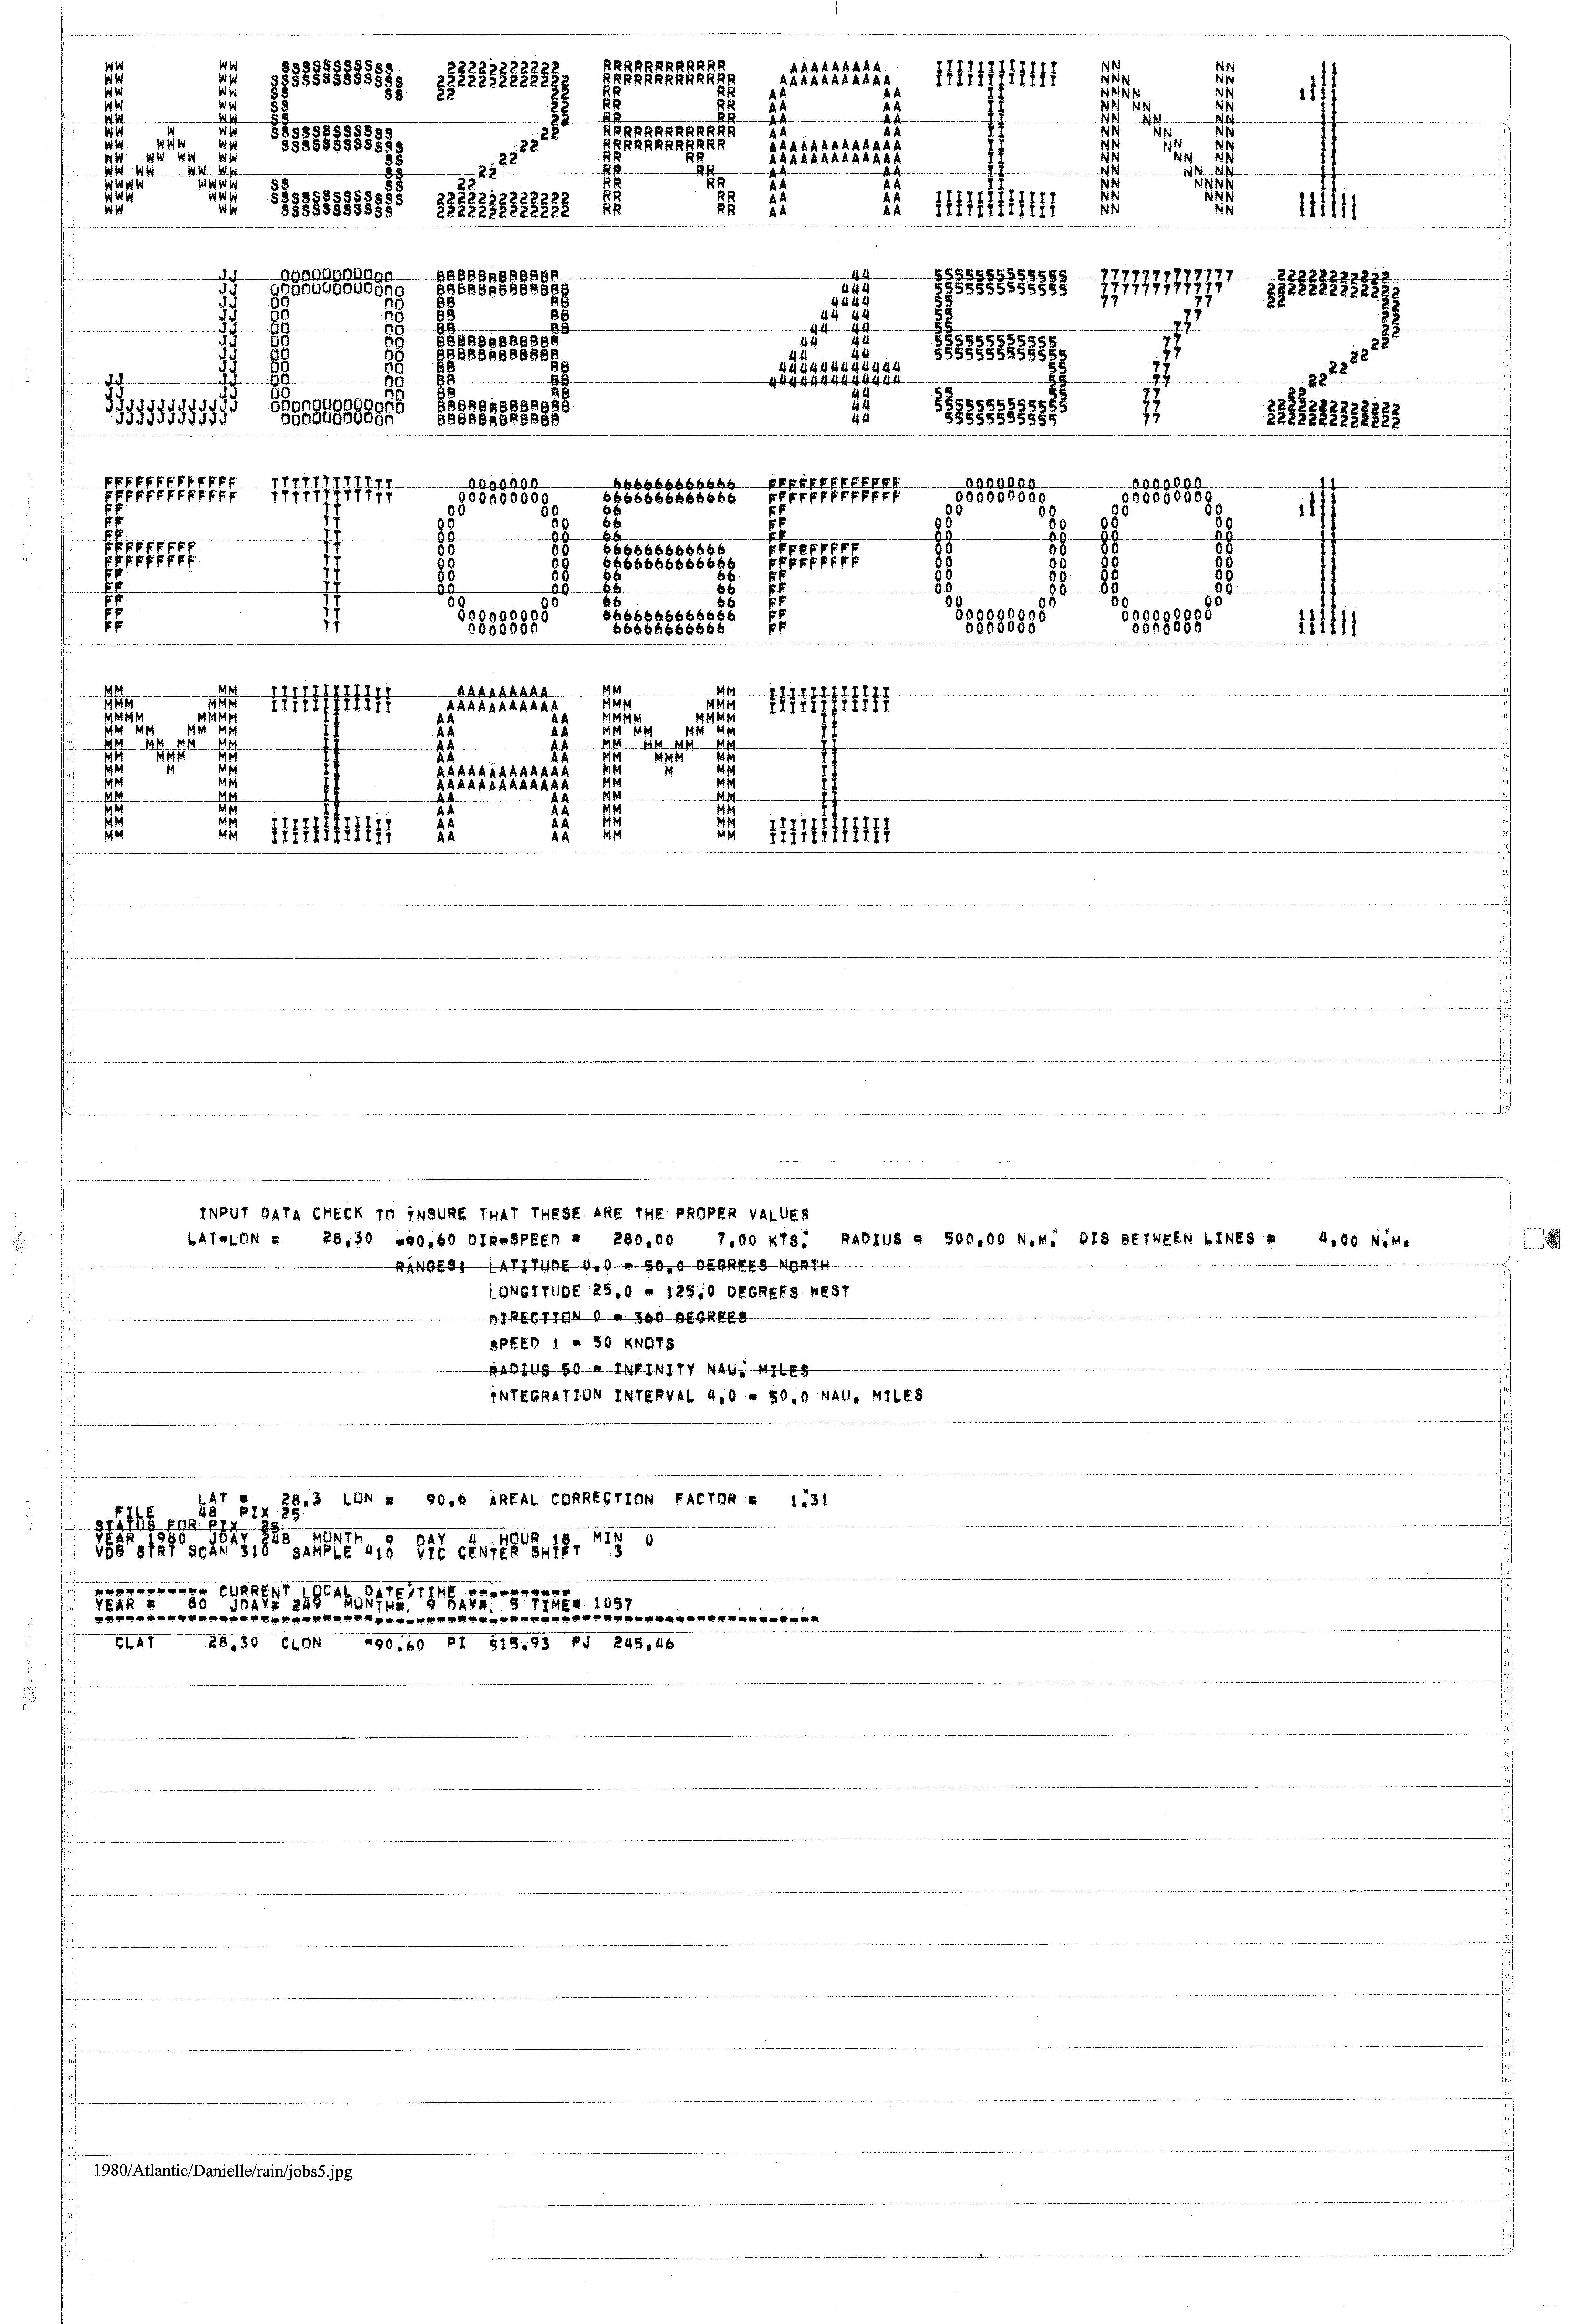 WS2RAIN1
JOB 4572
FT06F001
MIAMI
INPUT DATA CHECK TO INSURE THAT THESE ARE THE PROPER VALUES
LAT-LON = 28.30 -90.60 DIR-SPEED = 280.00 7.00 KTS. RADIUS = 500.00 N.M. DIS BETWEEN LINES = 4.00 N.M.
RANGES: LATITUDE 0.0 - 50.0 DEGREES NORTH
LONGITUDE 25.0 - 125.0 DEGREES WEST
DIRECTION 0 - 360 DEGREES
SPEED 1 - 50 KNOTS
RADIUS 50 - INFINITY NAU. MILES
INTEGRATION INTERVAL 4.0 - 50.0 NAU. MILES
LAT = 28.3 LON = 90.6 AREAL CORRECTION FACTOR = 1.31
FILE 48 PIX 25
STATUS FOR PIX 25
YEAR 1980 JDAY 248 MONTH 9 DAY 4 HOUR 18 MIN 0
VDB STRT SCAN 310 SAMPLE 410 VIC CENTER SHIFT 3
=========== CURRENT LOCAL DATE/TIME ==========
YEAR = 80 JDAY= 249 MONTH= 9 DAY= 5 TIME= 1057
CLAT 28.30 CLON -90.60 PI 515.93 PJ 245.46
1980/Atlantic/Danielle/rain/jobs5.jpg